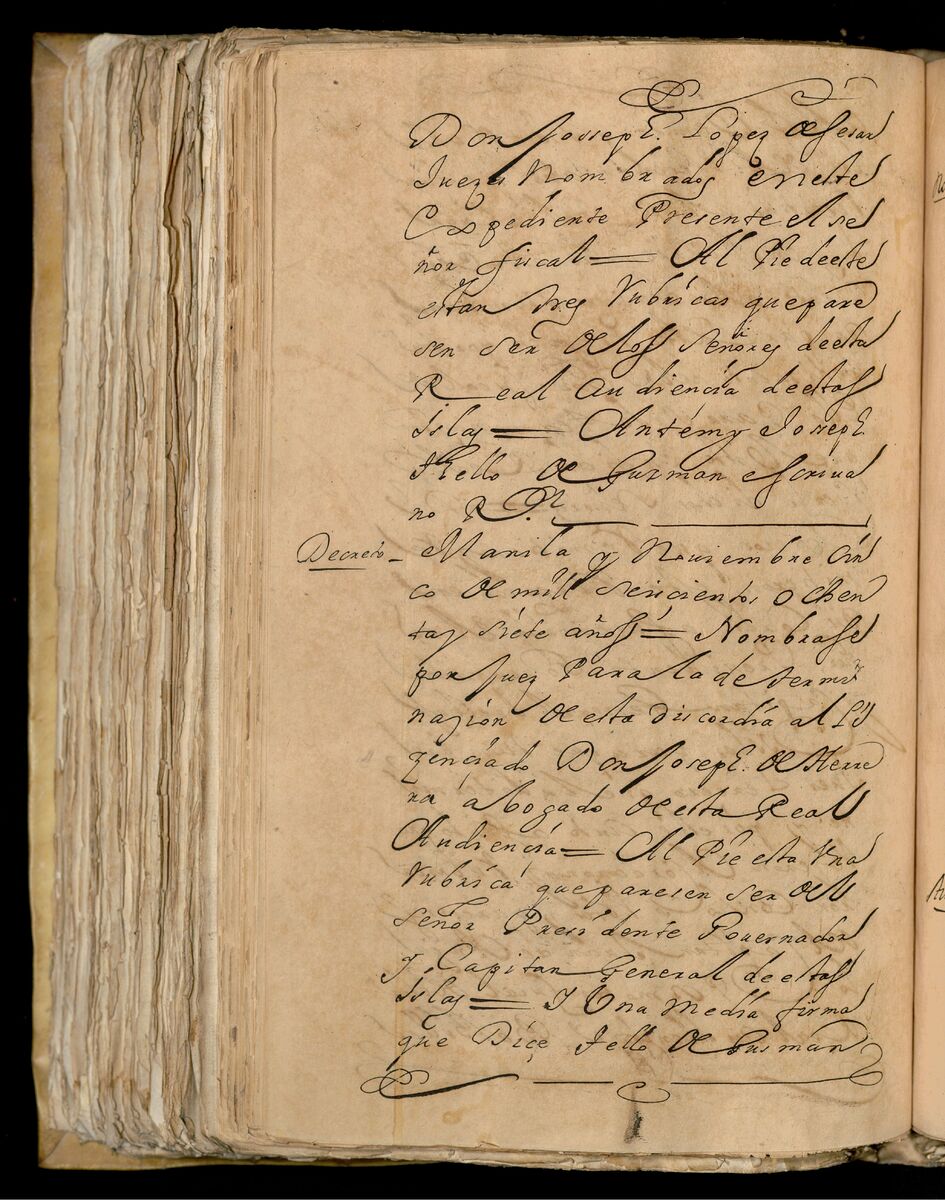 Don Josseph. Lopez de Sesar
Juezes Nombrados en este
Expediente Presente el se
ñor fiscal = Al Pie de este
estan tres Rubricas que pare
sen ser de los señores de esta
Real Audiencia de estas
islas = Antemy Josseph.
Thello de Guzman escriva
no R
Decreto - Manila y Noviembre sin
co de mill seiscientos ochen
tay siete años = Nombrase
por juez Para la determi
nazion de esta discordia al Li
zenciado Don Joseph. de Herre
ra abogado de esta Real
Audiencia = Al Pie esta Una
Rubrica que paresen ser del
señor Presidente Governador
y Capitan General de estas
islas = y Una media firma
que Dice Tello de Gusman